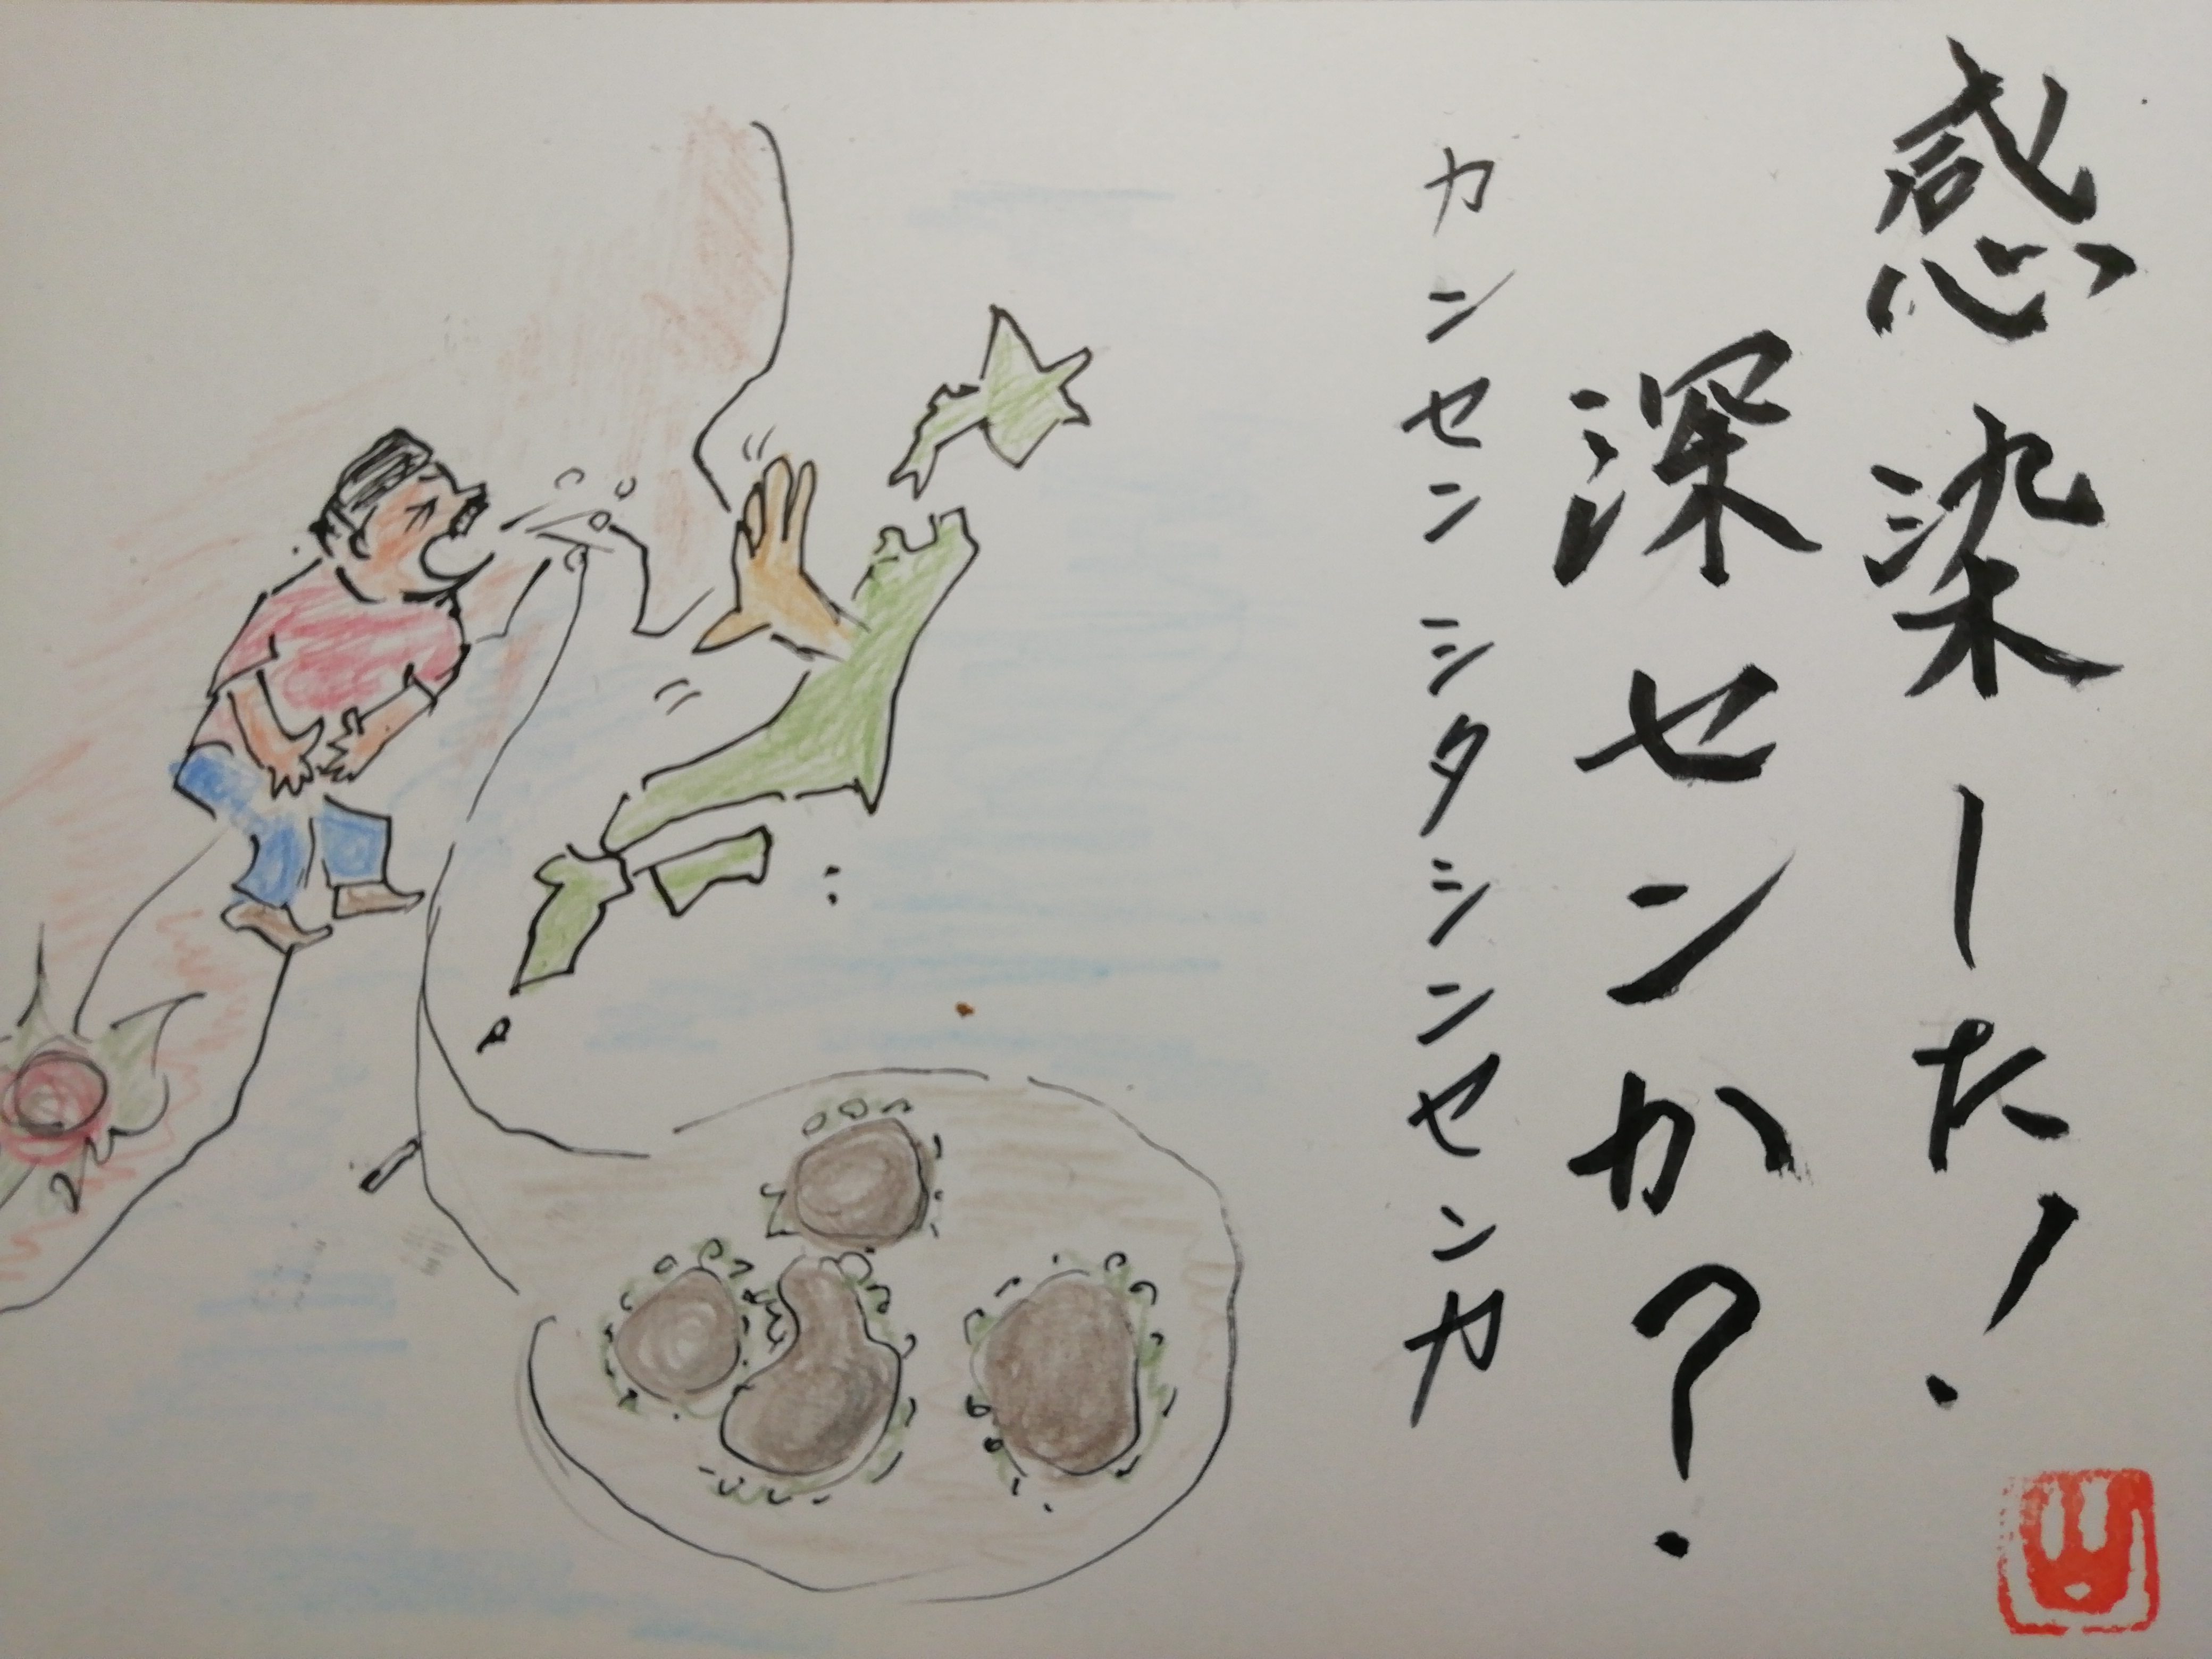 感染ーた!
深センか?
カンセンシタシンセンカ